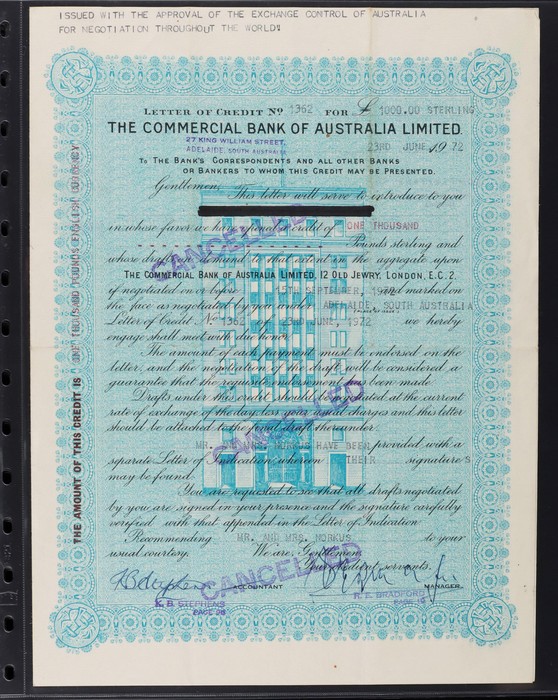 ISSUED WITH THE APPROVAL OF THE EXCHANGE CONTROL OF AUSTRALIA
FOR NEGOTIATION THROUGHOUT THE WORLD
LETTER OF CREDIT No 1362 FOR £ 1000.00 STERLING
THE COMMERCIAL BANK OF AUSTRALIA LIMITED.
27 KING WILLIAM STREET,
ADELAIDE, SOUTH AUSTRALIA
23RD JUNE, 1972
TO THE BANK'S CORRESPONDENTS AND ALL OTHER BANKS
OR BANKERS TO WHOM THIS CREDIT MAY BE PRESENTED.
Gentlemen, This letter will serve to introduce to you
in whose favor we have opened a credit of ONE THOUSAND
Pounds sterling and
whose drafts on demand to that extent in the aggregate upon
THE COMMERCIAL BANK OF AUSTRALIA LIMITED, 12 OLD JEWRY, LONDON, E.C.2.
if negotiated on or before 15TH SEPTEMBER, and marked on
the face as negotiated by you under ADELAIDE, SOUTH AUSTRALIA
Letter of Credit No 1362 of 23RD JUNE, 1972 we hereby
engage shall meet with due honor.
The amount of each payment must be endorsed on the
letter, and the negotiation of the draft will be considered a
guarantee that the required endorsement has been made.
Drafts under this credit should be negotiated at the current
rate of exchange of the day, less your usual charges and this letter
should be attached to the final draft thereunder.
MR. AND MRS. NORKUS HAVE BEEN provided with a
separate Letter of Indication whereon THEIR signatureS
may be found.
You are requested to see that all drafts negotiated
by you are signed in your presence and the signature carefully
verified with that appended in the Letter of Indication
Recommending MR. AND MRS. NORKUS to your
usual courtesy. We are, Gentlemen,
Your obedient servants.
ACCOUNTANT MANAGER.
K. B. STEPHENS R. E. BRADFORD
THE AMOUNT OF THIS CREDIT IS ONE THOUSAND POUNDS ENGLISH CURRENCY
CANCELLED
CANCELLED
CANCELLED